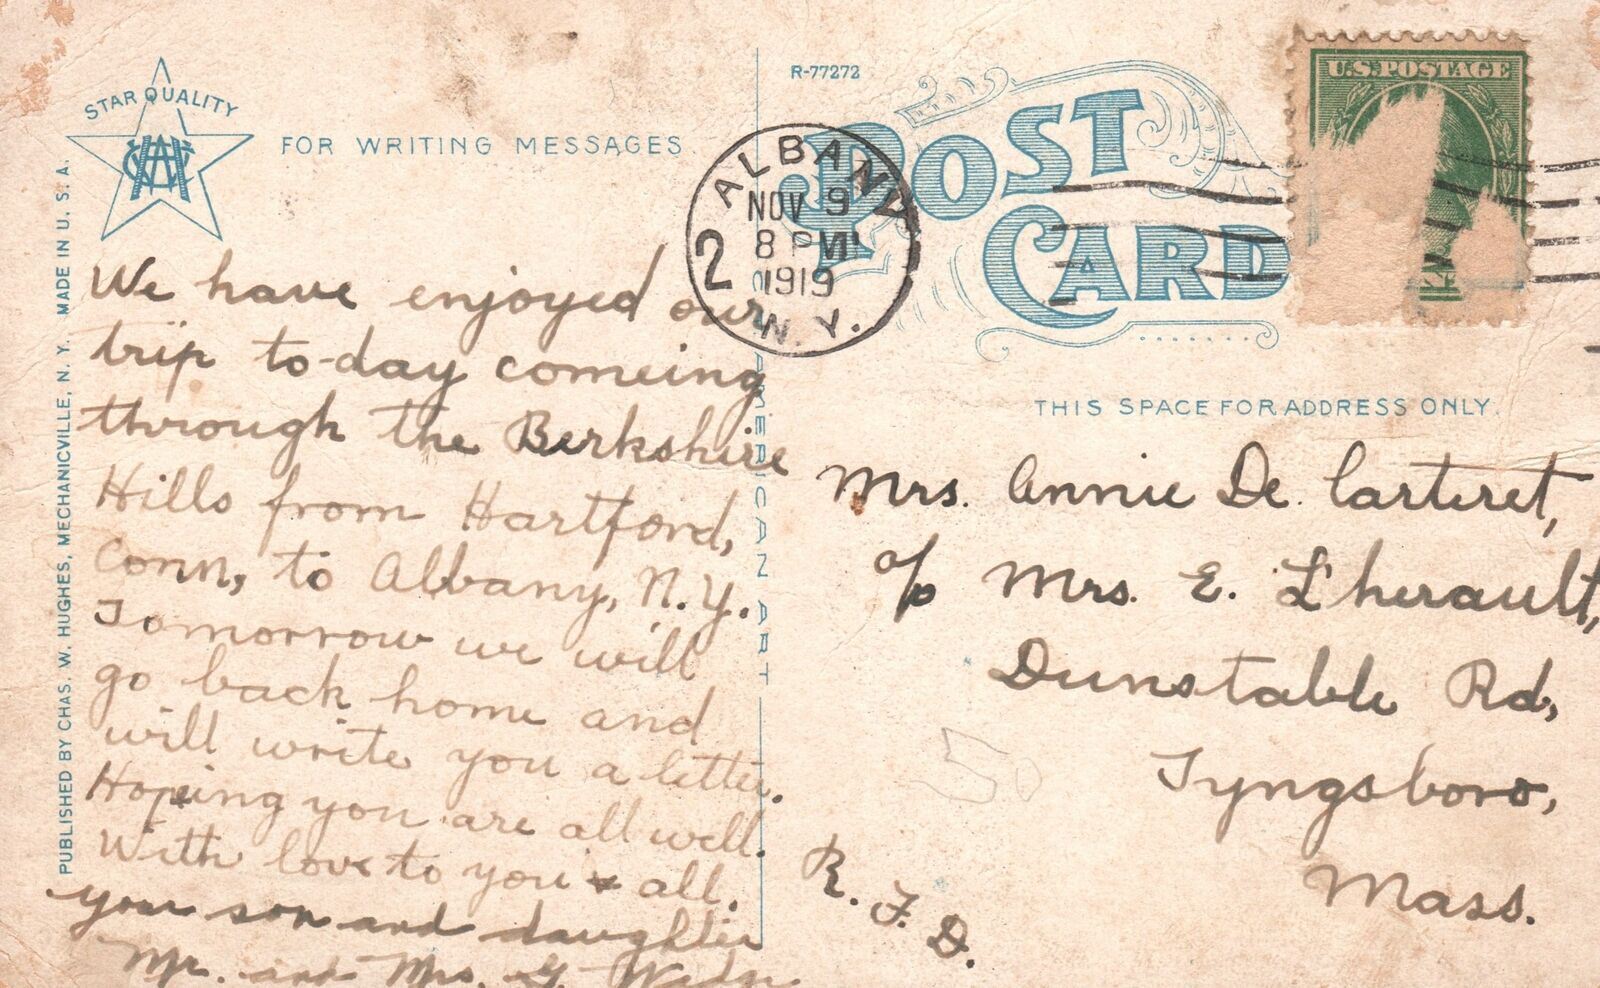 STAR QUALITY
FOR WRITING MESSAGES
PUBLISHED BY CHAS. W. HUGHES, MECHANICVILLE, N. Y. MADE IN U. S. A.
We have enjoyed our
trip to-day comeing
through the Berkshire
Hills from Hartford,
Conn, to Albany, N.Y.
Tomorrow we will
go back home and
will write you a letter.
Hopeing you are all well.
With love to you & all.
your son and daughter
Mr. and Mrs. G.
AMERICAN ART
R-77272
POST
CARD
ALBANY
NOV 9
8 PM
1919
2
N. Y.
U.S. POSTAGE
THIS SPACE FOR ADDRESS ONLY.
Mrs. Annie De Carteret,
c/o Mrs. E. L'herault,
Dunstable Rd,
Tyngsboro,
Mass.
R. F. D.
50